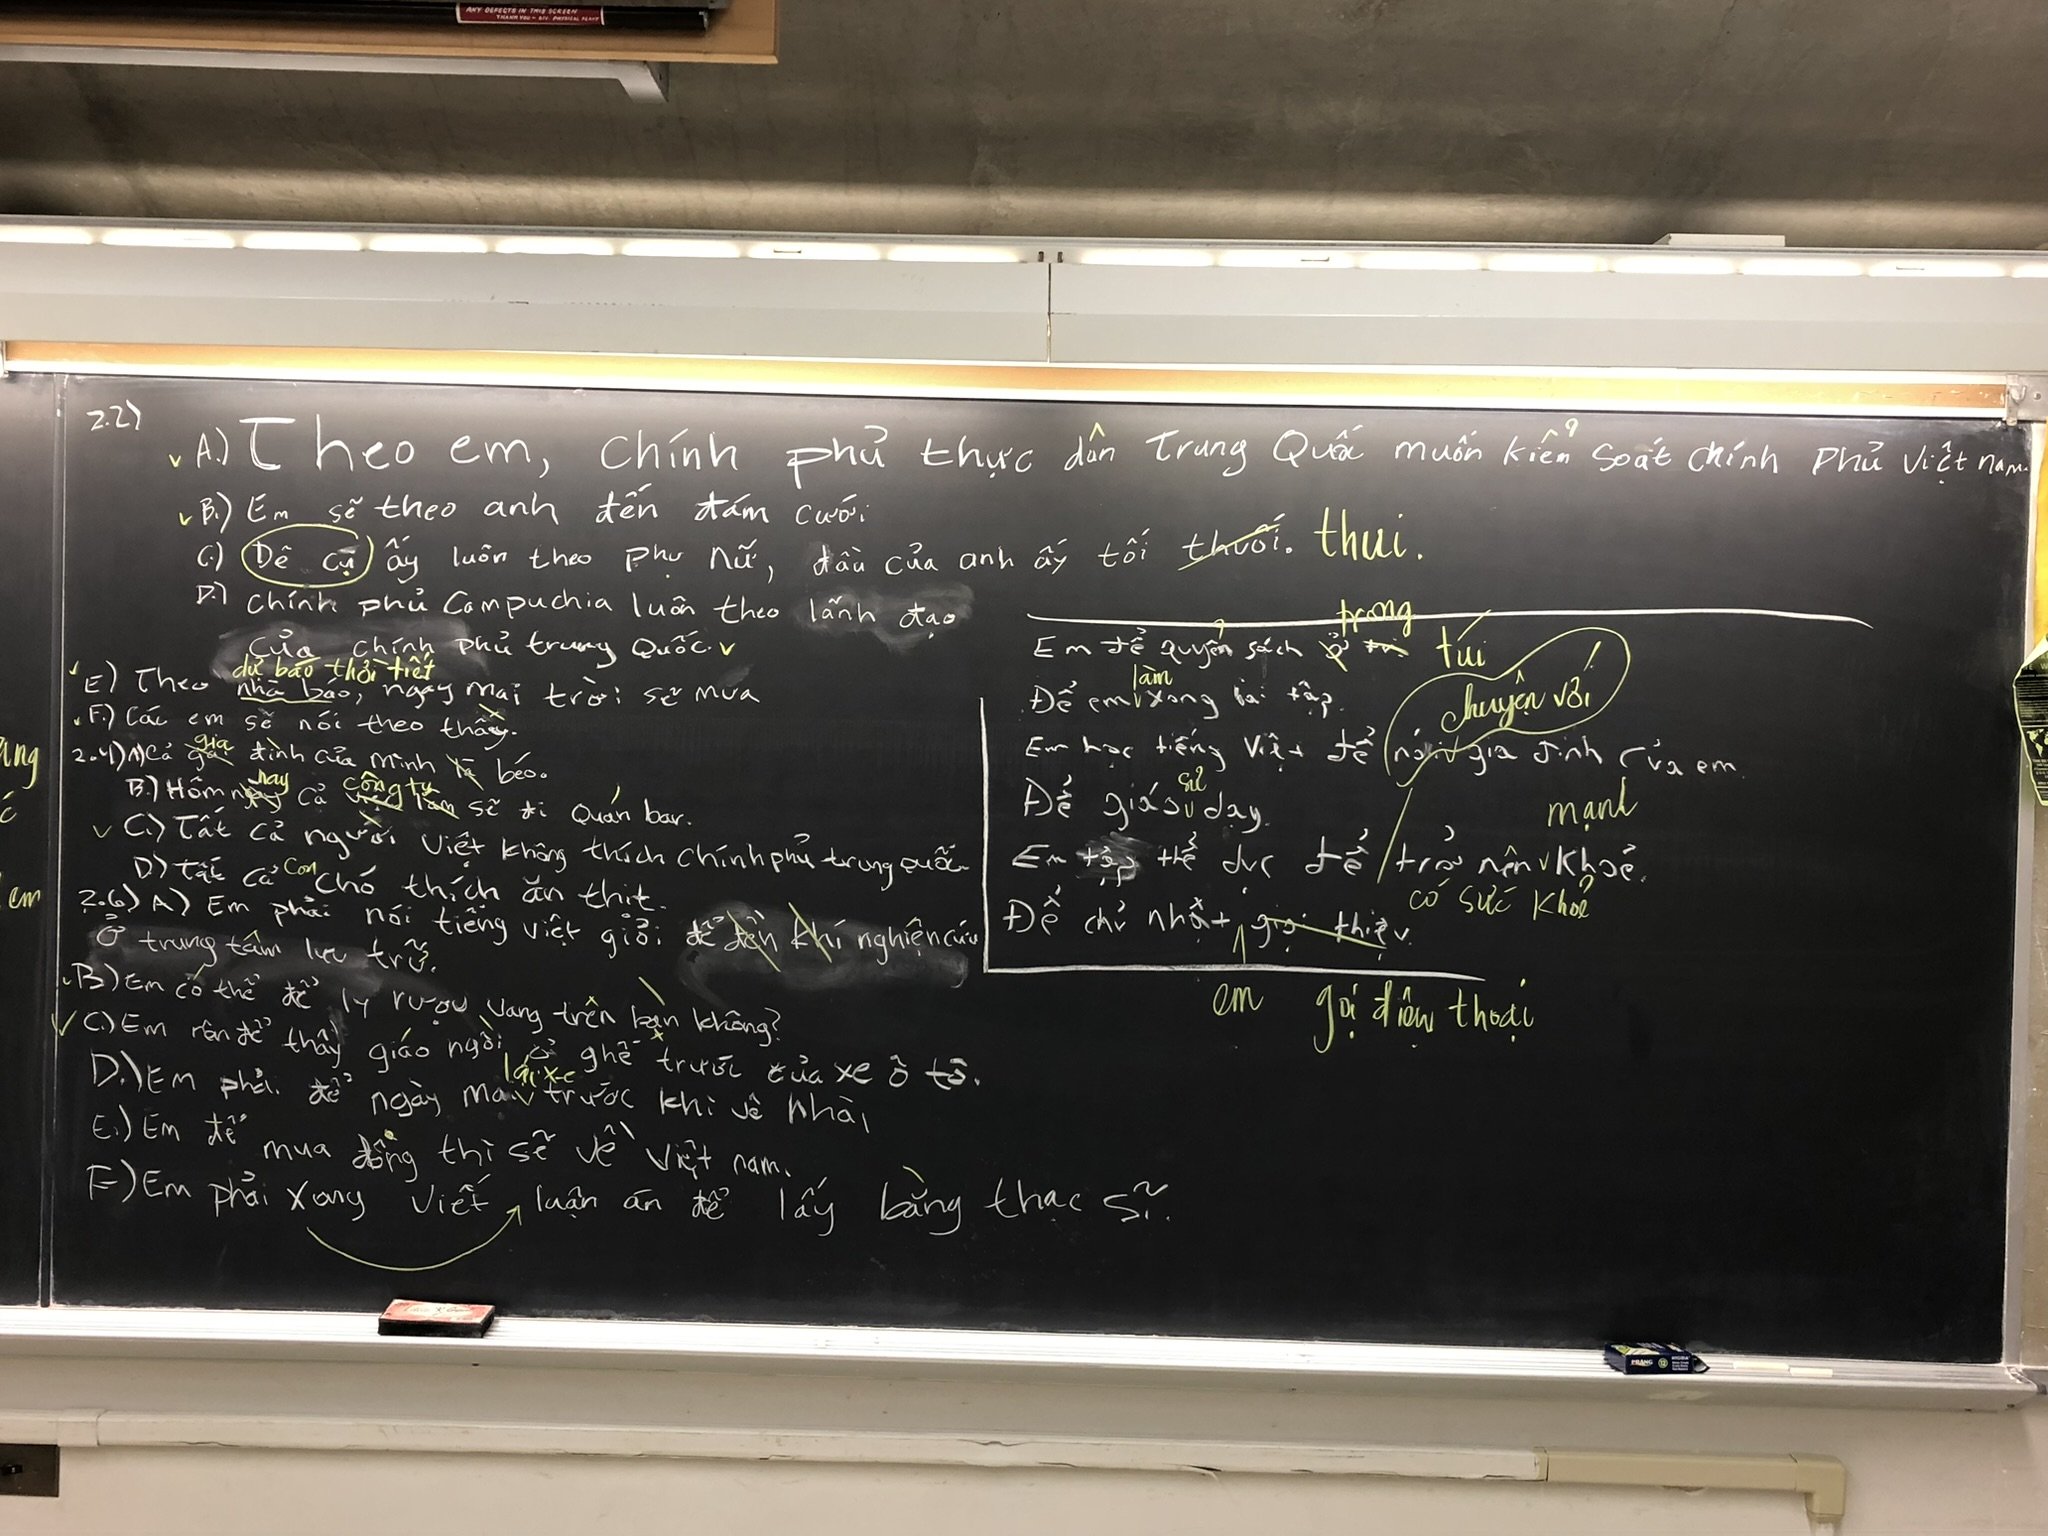 ANY DEFECTS IN THIS SCREEN
THANK YOU - DIV. PHYSICAL PLANT
2.2)
A.) Theo em, chính phủ thực dân Trung Quốc muốn kiểm soát chính phủ Việt nam.
B.) Em sẽ theo anh đến đám cưới
C.) Dê cụ ấy luôn theo phụ nữ, đầu của anh ấy tối thuối. thui.
D.) Chính phủ Campuchia luôn theo lãnh đạo
của chính phủ trung Quốc.
dự báo thời tiết
E) Theo nhà báo, ngày mai trời sẽ mưa
F.) Các em sẽ nói theo thầy.
gia
2.4) A) Cả đình của mình là béo.
nay công ty
B.) Hôm cả việc làm sẽ đi Quán bar.
C.) Tất cả người Việt không thích chính phủ trung quốc
D) Tất cả con chó thích ăn thịt.
2.6) A) Em phải nói tiếng việt giỏi để đến khi nghiên cứu
Ở trung tâm lưu trữ.
B) Em có thể để ly rượu vang trên bàn không?
C.) Em nên để thầy giáo ngồi ở ghế trước của xe ô tô.
lái xe
D.) Em phải để ngày mai trước khi về nhà,
E.) Em để mua đồng thì sẽ về Việt nam.
F) Em phải xong viết luận án để lấy bằng thạc sĩ.
trong
Em để quyển sách ở túi
làm
Để em xong bài tập.
chuyện với
Em học tiếng Việt để nói gia đình của em
sư
Để giáo dạy.
mạnh
Em tập thể dục để trở nên khoẻ.
có sức khoẻ
Để chủ nhật giới thiệu.
em gọi điện thoại
ang
em
PRANG 12